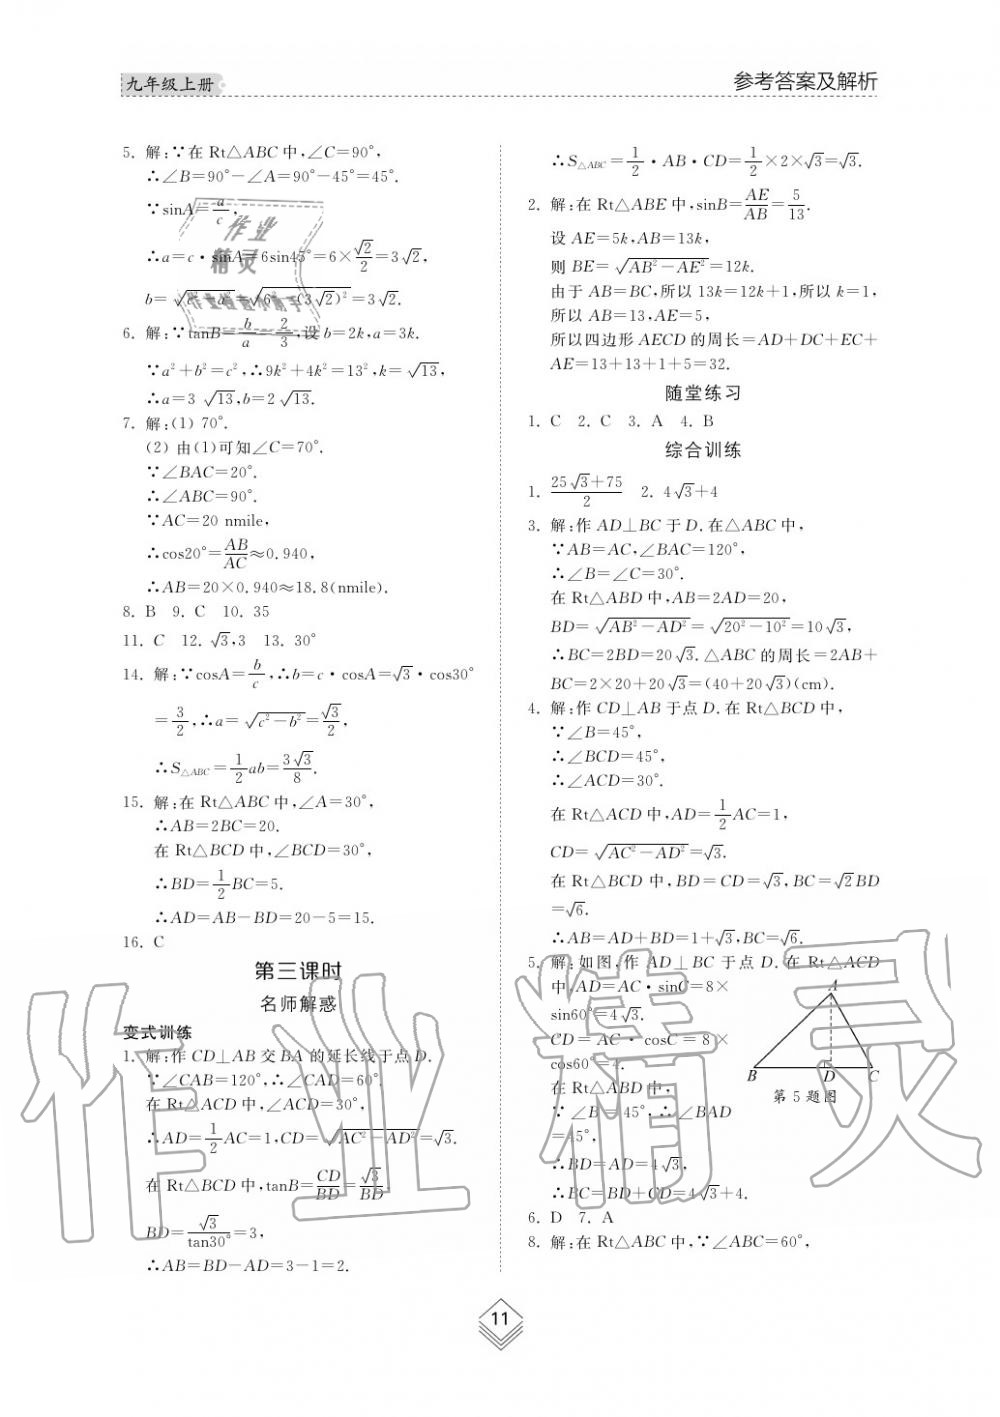 九年级上册
参考答案及解析
5. 解:∵在 Rt△ABC 中,∠C=90°,
∴∠B=90°-∠A=90°-45°=45°.
∵sinA=a/c,
∴a=c·sinA=6sin45°=6×√2/2=3√2,
b=√(c²-a²)=√(6²-(3√2)²)=3√2.
6. 解:∵tanB=b/a=2/3,设 b=2k,a=3k.
∵a²+b²=c²,∴9k²+4k²=13²,k=√13,
∴a=3√13,b=2√13.
7. 解:(1) 70°.
(2) 由(1)可知∠C=70°.
∵∠BAC=20°.
∴∠ABC=90°.
∵AC=20 nmile,
∴cos20°=AB/AC≈0.940,
∴AB=20×0.940≈18.8(nmile).
8. B 9. C 10. 35
11. C 12. √3,3 13. 30°
14. 解:∵cosA=b/c,∴b=c·cosA=√3·cos30°
=3/2,∴a=√(c²-b²)=√3/2,
∴S△ABC=1/2ab=3√3/8.
15. 解:在 Rt△ABC 中,∠A=30°,
∴AB=2BC=20.
在 Rt△BCD 中,∠BCD=30°,
∴BD=1/2BC=5.
∴AD=AB-BD=20-5=15.
16. C
第三课时
名师解惑
变式训练
1. 解:作 CD⊥AB 交 BA 的延长线于点 D.
∵∠CAB=120°,∴∠CAD=60°.
在 Rt△ACD 中,∠ACD=30°,
∴AD=1/2AC=1,CD=√(AC²-AD²)=√3.
在 Rt△BCD 中,tanB=CD/BD=√3/BD,
BD=√3/tan30°=3,
∴AB=BD-AD=3-1=2.
∴S△ABC=1/2·AB·CD=1/2×2×√3=√3.
2. 解:在 Rt△ABE 中,sinB=AE/AB=5/13.
设 AE=5k,AB=13k,
则 BE=√(AB²-AE²)=12k.
由于 AB=BC,所以 13k=12k+1,所以 k=1,
所以 AB=13,AE=5,
所以四边形 AECD 的周长=AD+DC+EC+
AE=13+13+1+5=32.
随堂练习
1. C 2. C 3. A 4. B
综合训练
1. (25√3+75)/2 2. 4√3+4
3. 解:作 AD⊥BC 于 D. 在△ABC 中,
∵AB=AC,∠BAC=120°,
∴∠B=∠C=30°.
在 Rt△ABD 中,AB=2AD=20,
BD=√(AB²-AD²)=√(20²-10²)=10√3,
∴BC=2BD=20√3. △ABC 的周长=2AB+
BC=2×20+20√3=(40+20√3)(cm).
4. 解:作 CD⊥AB 于点 D. 在 Rt△BCD 中,
∵∠B=45°,
∴∠BCD=45°,
∴∠ACD=30°.
在 Rt△ACD 中,AD=1/2AC=1,
CD=√(AC²-AD²)=√3.
在 Rt△BCD 中,BD=CD=√3,BC=√2BD
=√6.
∴AB=AD+BD=1+√3,BC=√6.
5. 解:如图,作 AD⊥BC 于点 D. 在 Rt△ACD
中,AD=AC·sinC=8×
sin60°=4√3.
CD=AC·cosC=8×
cos60°=4.
在 Rt△ABD 中,
∵∠B=45°,∴∠BAD
=45°,
∴BD=AD=4√3,
∴BC=BD+CD=4√3+4.
A
B D C
第 5 题图
6. D 7. A
8. 解:在 Rt△ABC 中,∵∠ABC=60°,
11
作业精灵
作业
精灵